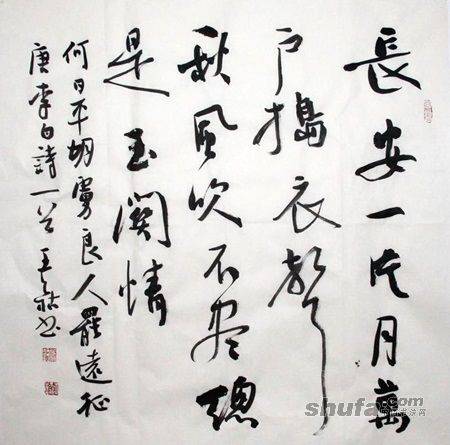 長安一片月萬
户搗衣聲
秋風吹不盡總
是玉関情
何日平胡虜良人罷遠征
唐李白詩一首 王书